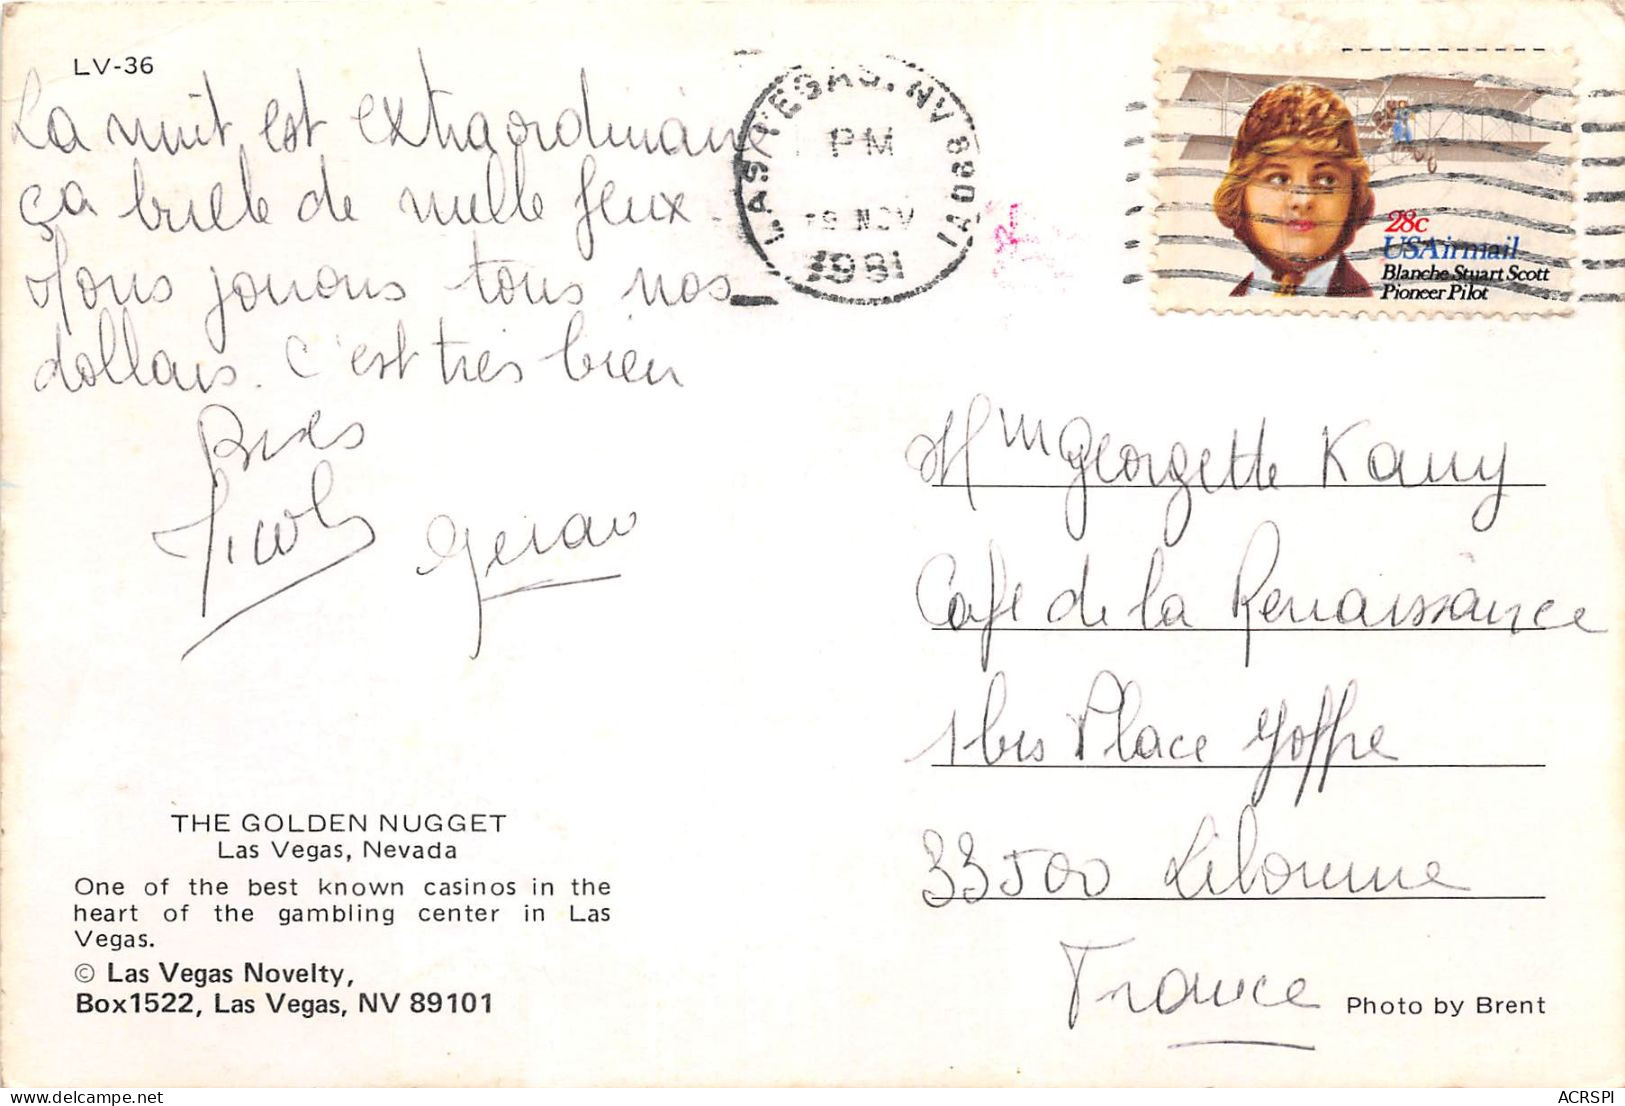 LV-36
La nuit est extraordinaire
ça brille de mille feux.
Nous jouons tous nos
dollars. C'est très bien
Bises
Gérard
THE GOLDEN NUGGET
Las Vegas, Nevada
One of the best known casinos in the
heart of the gambling center in Las
Vegas.
© Las Vegas Novelty,
Box1522, Las Vegas, NV 89101
LAS VEGAS, NV 890
PM
NOV
1981
28c
USAirmail
Blanche Stuart Scott
Pioneer Pilot
Mme Georgette Kauy
Café de la Renaissance
1 bis Place Joffre
33500 Libourne
France
Photo by Brent
ACRSPI